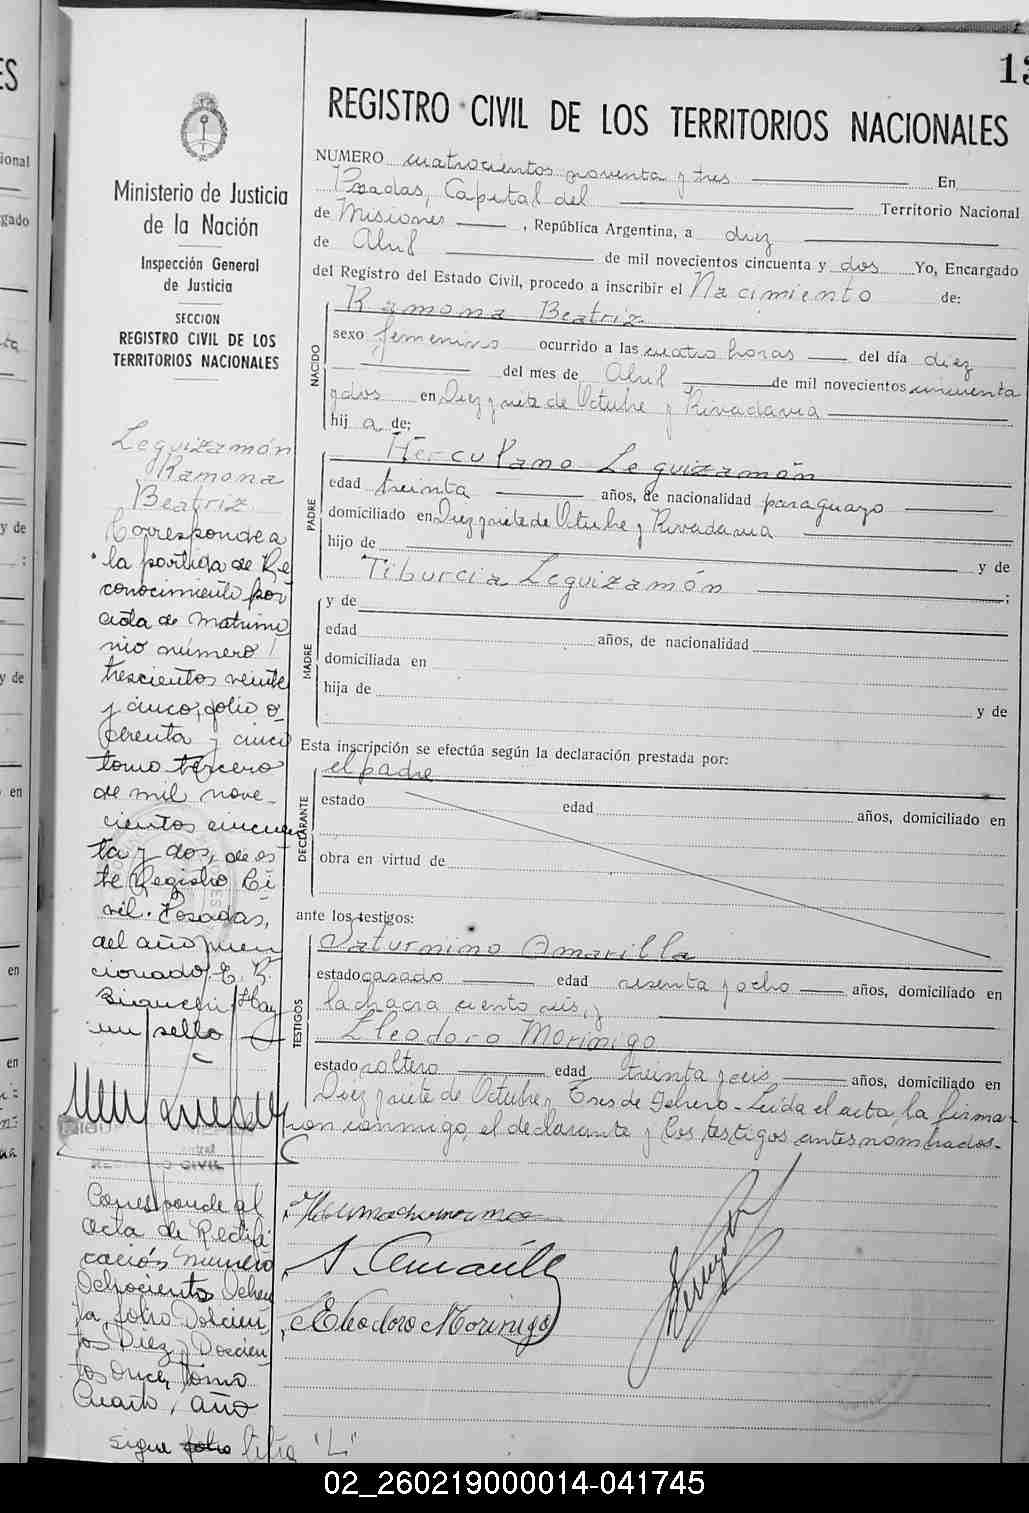 13
REGISTRO CIVIL DE LOS TERRITORIOS NACIONALES
Ministerio de Justicia
de la Nación
Inspección General
de Justicia
SECCION
REGISTRO CIVIL DE LOS
TERRITORIOS NACIONALES
NUMERO cuatrocientos noventa y tres En
Posadas, Capital del Territorio Nacional
de Misiones, República Argentina, a diez
de Abril de mil novecientos cincuenta y dos Yo, Encargado
del Registro del Estado Civil, procedo a inscribir el Nacimiento de:
NACIDO
Ramona Beatriz
sexo femenino ocurrido a las cuatro horas del día diez
del mes de Abril de mil novecientos cincuenta
y dos en Diez y siete de Octubre y Rivadavia
hij a de:
PADRE
Herculano Leguizamón
edad treinta años, de nacionalidad paraguayo
domiciliado en Diez y siete de Octubre y Rivadavia
hijo de y de
Tiburcia Leguizamón ;
MADRE
y de
edad años, de nacionalidad
domiciliada en
hija de
y de
Esta inscripción se efectúa según la declaración prestada por:
DECLARANTE
el padre
estado edad años, domiciliado en
obra en virtud de
ante los testigos:
TESTIGOS
Saturnino Amarilla
estado casado edad sesenta y ocho años, domiciliado en
la chacra ciento seis, y
Eleodoro Morinigo
estado soltero edad treinta y seis años, domiciliado en
Diez y siete de Octubre y Tres de Febrero - Leída el acta, la firma-
ron conmigo, el declarante y los testigos antes nombrados.-
S. Amarilla
Eleodoro Morinigo
Leguizamón
Ramona
Beatriz
Corresponde a
la partida de Re
conocimiento por
acta de matrimo
nio número
trescientos veinte
y cinco, folio o
chenta y cinco
tomo tercero
de mil nove-
cientos cincuen
ta y dos, de es
te Registro Ci
vil. Posadas,
del año men
cionado, E. R.
Bianchi, Hay
un sello
REGISTRO CIVIL
Corresponde al
acta de Rectifi
cación número
Ochocientos Ochen
ta, folio Doscien
tos Diez y Doscien
tos Once, tomo
Cuarto, año
sigue folio letra "L"
02_260219000014-041745